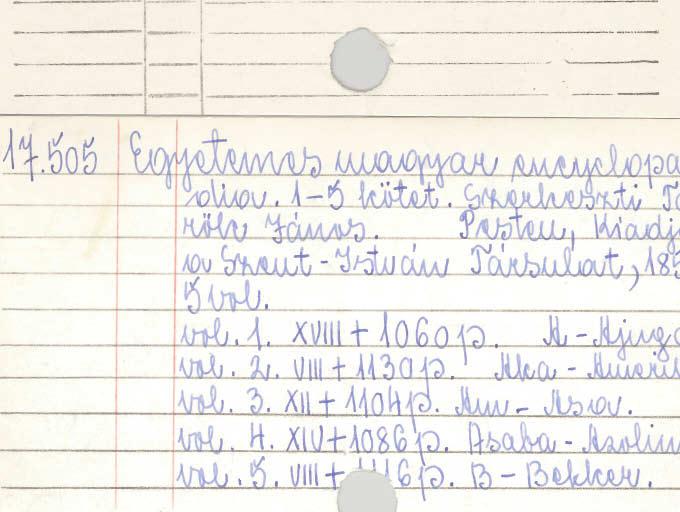 17.505 Egyetemes magyar encyclopa
dia. 1-5 kötet. Szerkeszti Tö
rök János. Pesten, Kiadj
a Szent-István Társulat, 185
5 vol.
vol. 1. XVIII + 1060 p. A-Ajuga
vol. 2. VIII + 1130 p. Aka-Ameri
vol. 3. XII + 1104 p. Am-Asa.
vol. 4. XIV + 1086 p. Asaba-Azolin
vol. 5. VIII + p. B-Bekker.